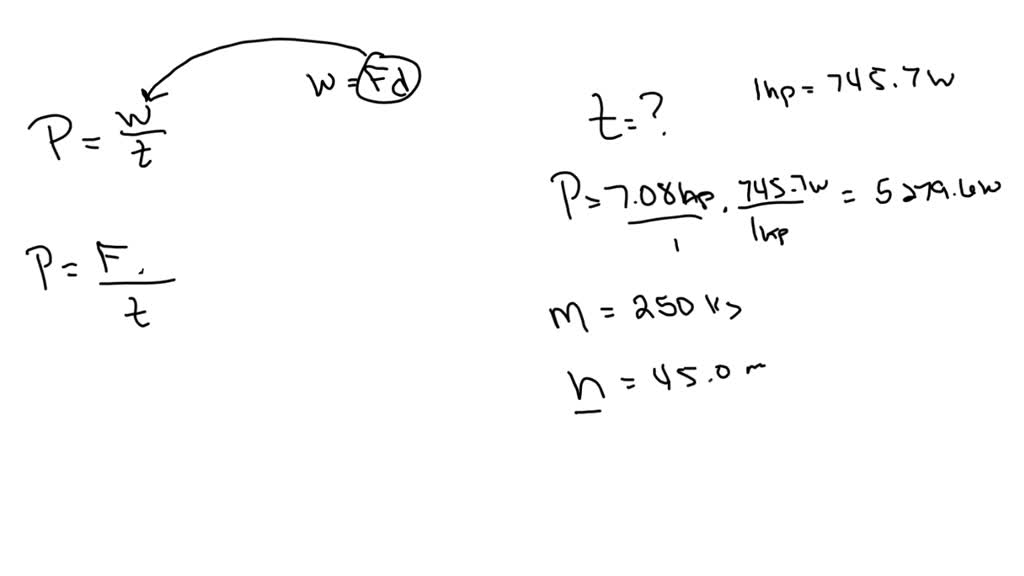 W = Fd
P = W/t
P = F./t
t = ?
1hp = 745.7 W
P = 7.08 hp/1 · 745.7 W/1hp = 5279.6 W
m = 250 kg
h = 45.0 m